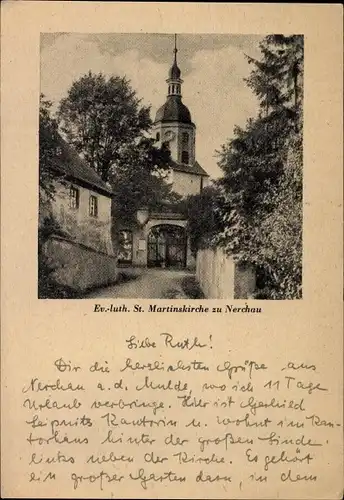 Ev.-luth. St. Martinskirche zu Nerchau
Liebe Ruth!
Dir die herzlichsten Grüße aus
Nerchau a. d. Mulde, wo ich 11 Tage
Urlaub verbringe. Hier ist Gerhild
Kantorin u. wohnt im Kan-
torhaus hinter der großen Linde,
links neben der Kirche. Es gehört
ein großer Garten dazu, in dem